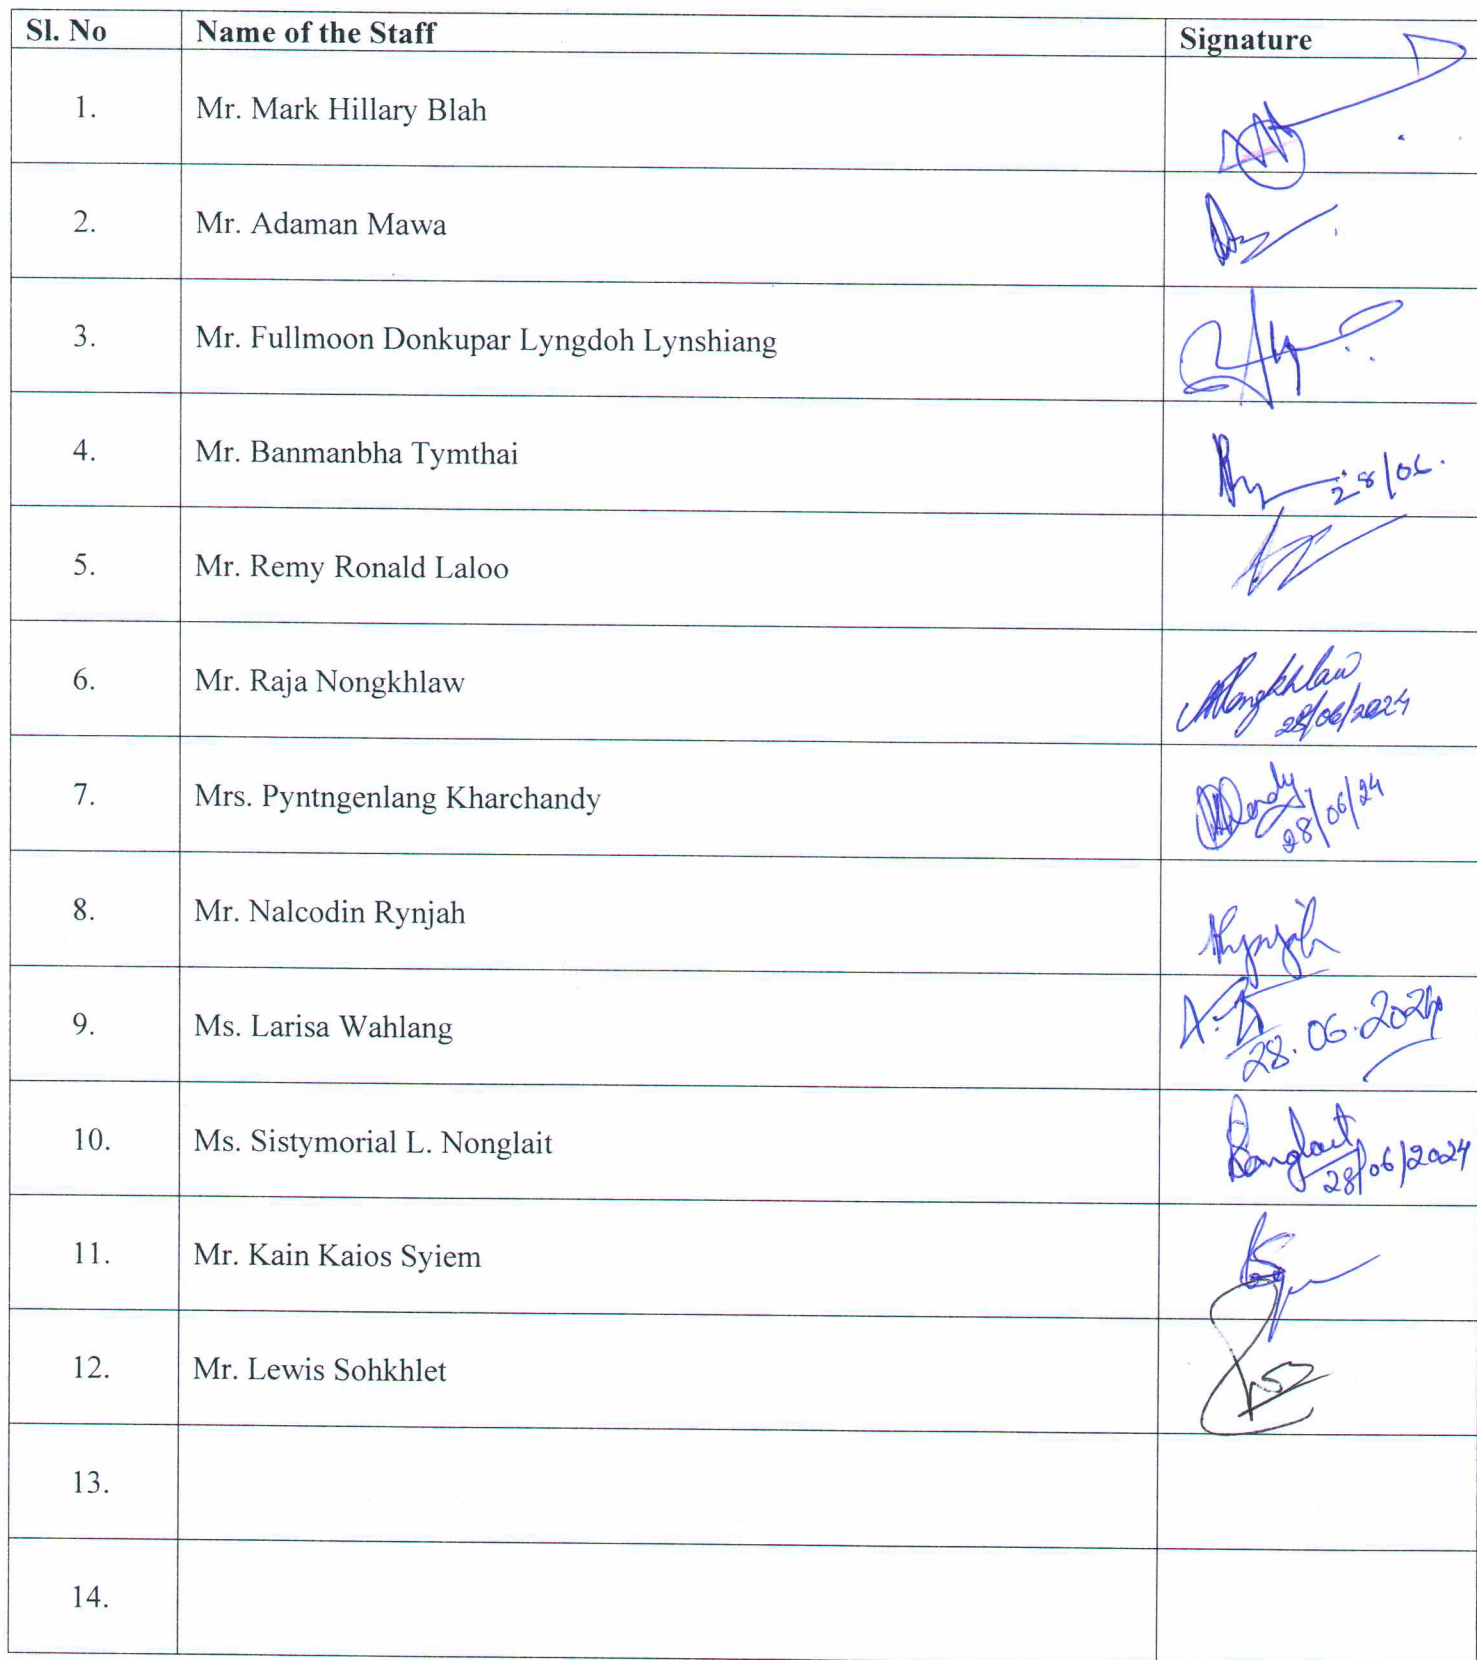 Sl. No Name of the Staff Signature
1. Mr. Mark Hillary Blah
2. Mr. Adaman Mawa
3. Mr. Fullmoon Donkupar Lyngdoh Lynshiang
4. Mr. Banmanbha Tymthai
28/06.
5. Mr. Remy Ronald Laloo
6. Mr. Raja Nongkhlaw Nongkhlaw
28/06/2024
7. Mrs. Pyntngenlang Kharchandy
28/06/24
8. Mr. Nalcodin Rynjah Rynjah
9. Ms. Larisa Wahlang
28.06.2024
10. Ms. Sistymorial L. Nonglait
28/06/2024
11. Mr. Kain Kaios Syiem
12. Mr. Lewis Sohkhlet
13.
14.